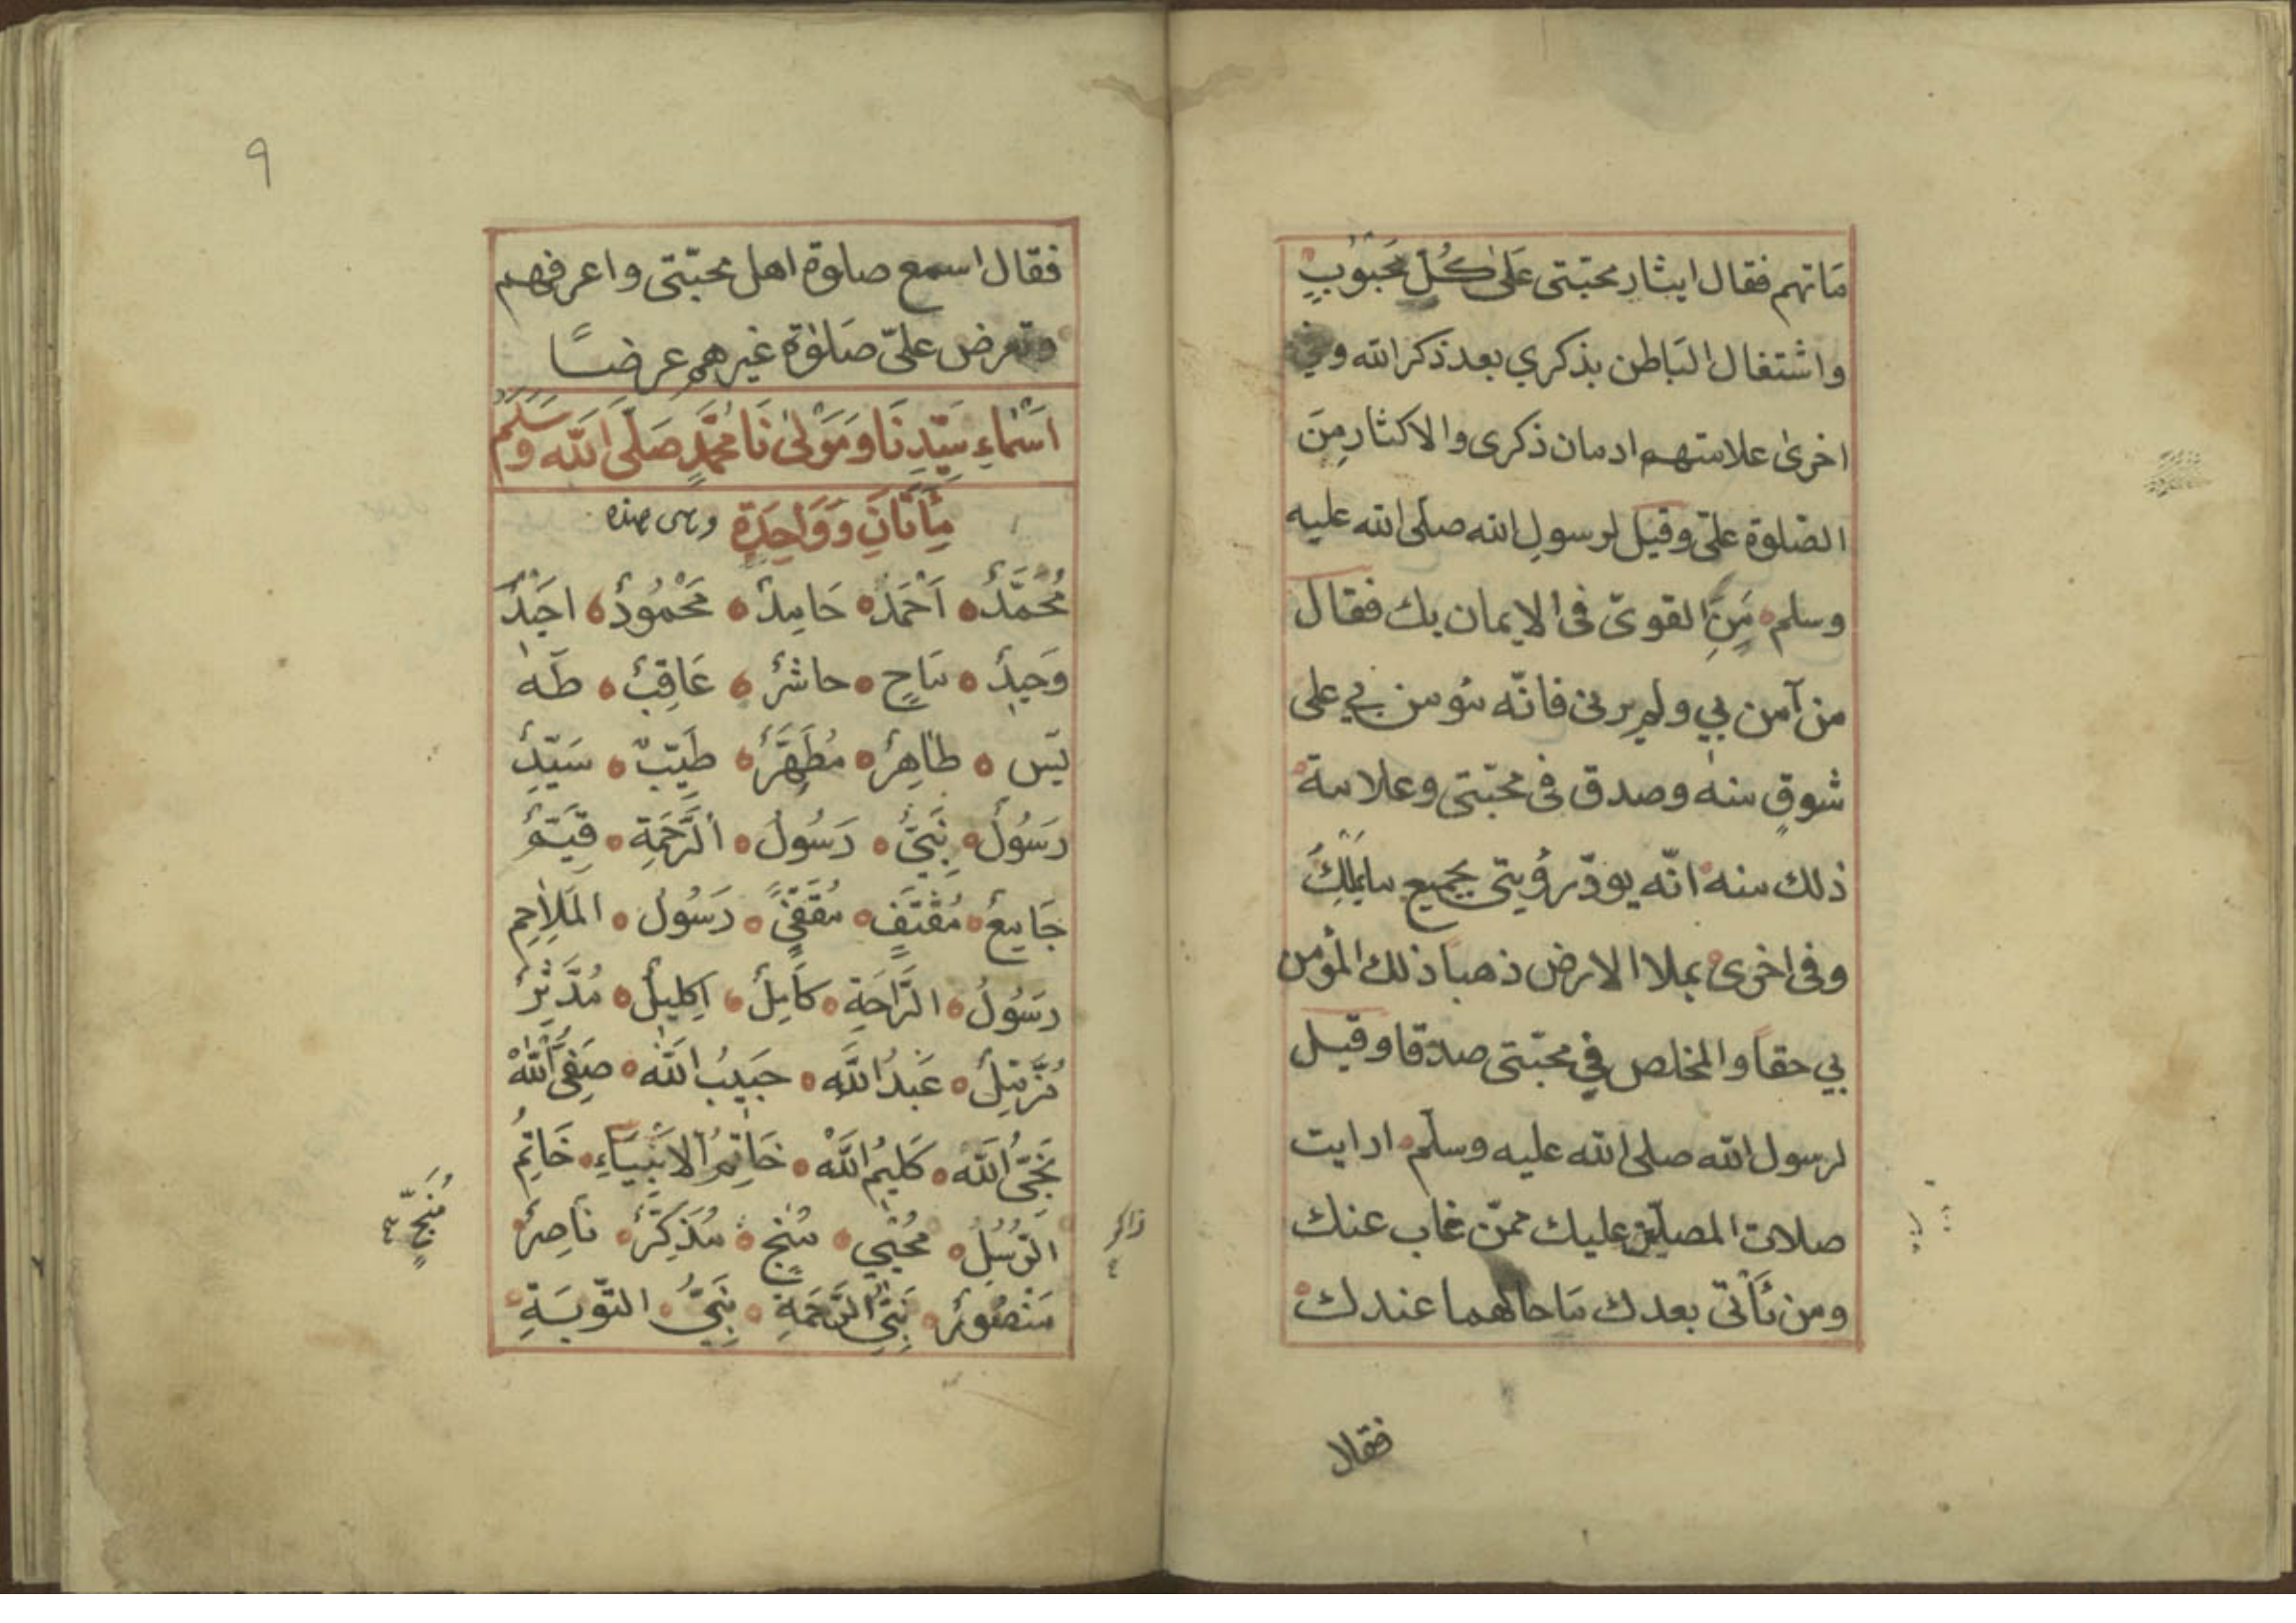 مَاتهم فقال ايثار محبّتى عَلىٰ كُلّ مَحْبُوبٍ
واشتغال البَاطن بذكري بعد ذكر الله وفي
اخرىٰ علامتهم ادمان ذكرى والاكثار مِنَ
الصّلوة علىّ وقيل لرسولِ الله صلّى الله عليه
وسلم مَنِ القوىّ فى الايمان بك فقال
من آمن بي ولم يرنى فانّه مؤمن بي على
شوقٍ منه وصدق فى محبّتى وعلامة
ذلك منه انّه يودّ رؤيتى بجميع مايَمْلِكُ
وفى اخرى بملاا الارض ذهبا ذلك المؤمن
بي حقاً والمخلص في محبّتى صدقا وقيل
لرسول الله صلى الله عليه وسلّم ارايت
صلاة المصلّين عليك ممّن غاب عنك
ومن يَأتى بعدك مَا حالهما عندك
فقال
٩
فقال اسمع صلوة اهل محبّتى واعرفهم
وتعرض علىّ صَلوٰة غيرهم عرضًا
اَسْمَاءِ سَيّدِنَا وَمَوْلىٰنَا مُحَمَّدٍ صَلّى الله وَسَلَّمَ
مِأَتَانِ وَوَاحِدَة وهى هذه
مُحَمَّدٌ اَحْمَدُ حَامِدٌ مَحْمُودٌ اَحِيدٌ
وَحِيدٌ مَاحٍ حاشرٌ عَاقِبٌ طٰهٰ
يٰسَ طَاهِرٌ مُطَهَّرٌ طَيّبٌ سَيّدٌ
رَسُولٌ نَبِىٌّ رَسُولُ الرَّحْمَةِ قَيّمٌ
جَامِعٌ مُقْتَفٍ مُقَفّىً رَسُولُ المَلَاحِمِ
رَسُولُ الرَّاحَةِ كَامِلٌ اِكْلِيلٌ مُدَّثِّرٌ
مُزَّمِّلٌ عَبْدُ اللَّه حَبِيبُ اللَّه صَفِىُّ اللَّهْ
نَجِىُّ اللَّه كَلِيمُ اللَّهْ خَاتِمُ الاَنْبِيَاءِ خَاتِمُ
الرُّسُلِ مُحْيِي مُنْجٍ مُذَكِّرٌ نَاصِرٌ
مَنْصُورٌ نَبِىُّ الرَّحْمَةِ نَبِىُّ التّوبَةِ
مُنَجٍّ
ذاكر